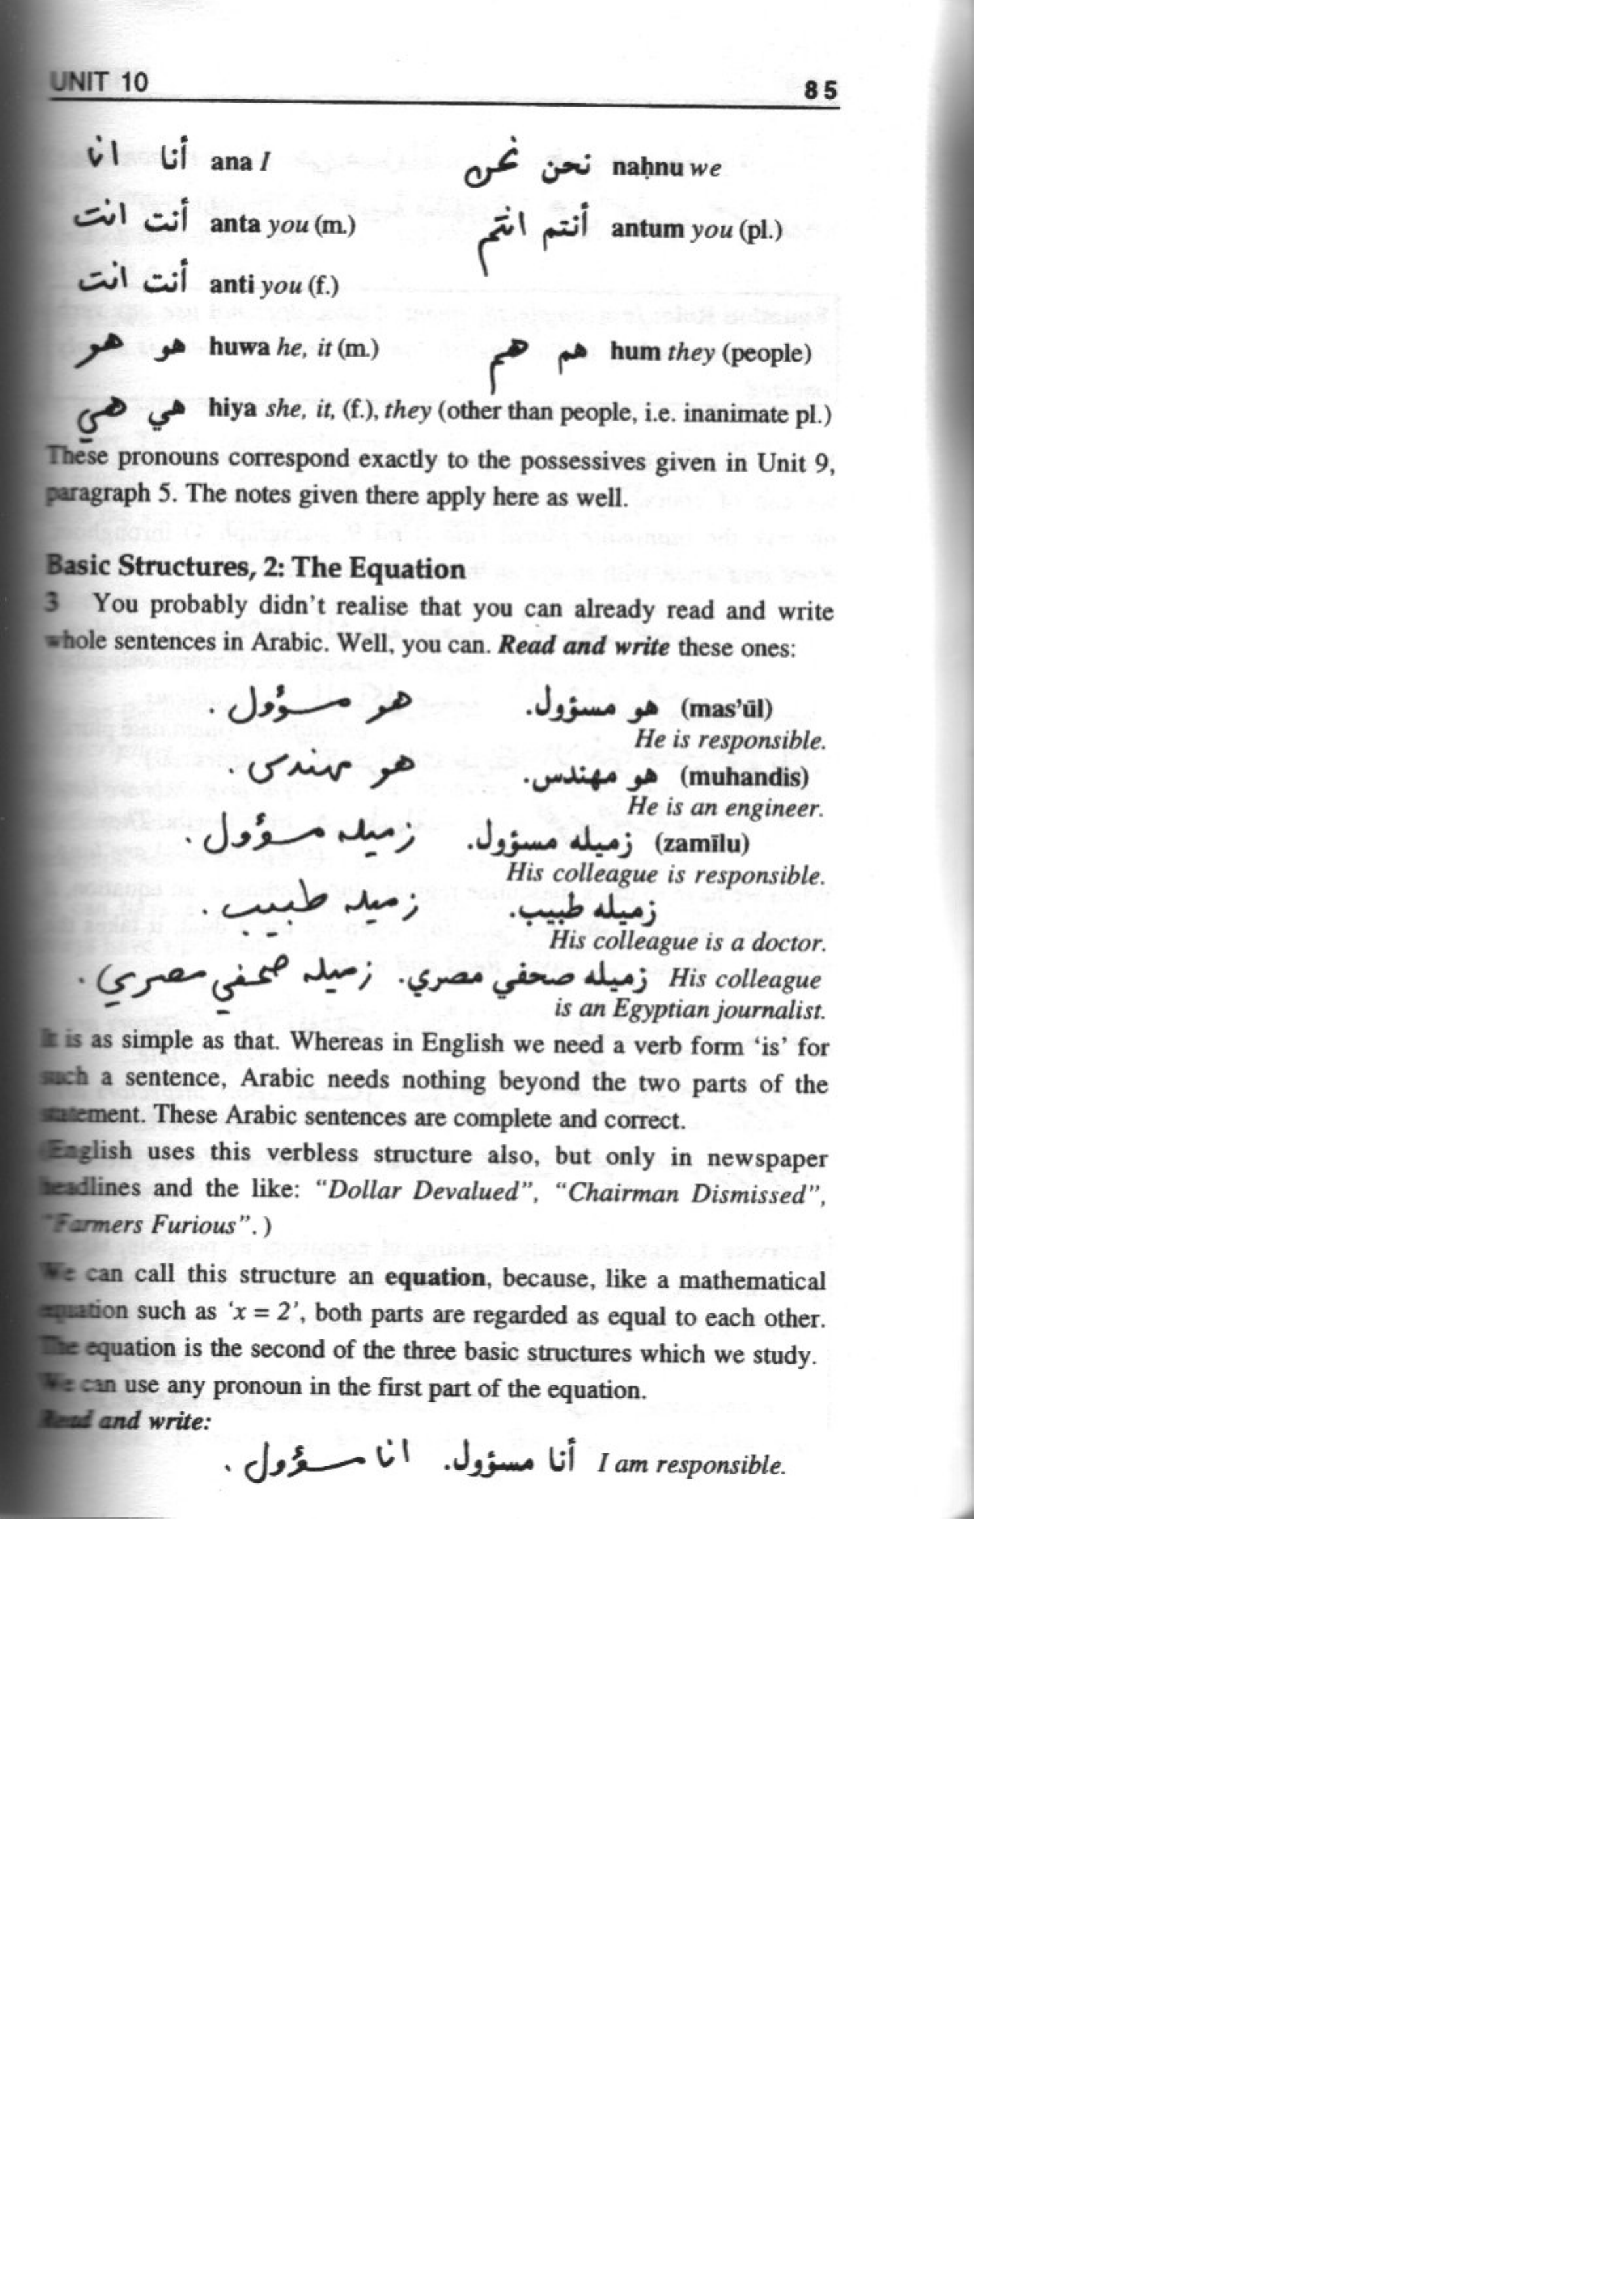 UNIT 10 85
انا أنا ana I نحن نحن naḥnu we
انت أنت anta you (m.) انتم أنتم antum you (pl.)
انت أنت anti you (f.)
هو هو huwa he, it (m.) هم هم hum they (people)
هي هي hiya she, it, (f.), they (other than people, i.e. inanimate pl.)
These pronouns correspond exactly to the possessives given in Unit 9,
paragraph 5. The notes given there apply here as well.
Basic Structures, 2: The Equation
3 You probably didn't realise that you can already read and write
whole sentences in Arabic. Well, you can. Read and write these ones:
هو مسؤول. هو مسؤول. (mas'ūl)
He is responsible.
هو مهندس. هو مهندس. (muhandis)
He is an engineer.
زميله مسؤول. زميله مسؤول. (zamīlu)
His colleague is responsible.
زميله طبيب. زميله طبيب.
His colleague is a doctor.
زميله صحفي مصري. زميله صحفي مصري. His colleague
is an Egyptian journalist.
It is as simple as that. Whereas in English we need a verb form 'is' for
such a sentence, Arabic needs nothing beyond the two parts of the
statement. These Arabic sentences are complete and correct.
(English uses this verbless structure also, but only in newspaper
headlines and the like: "Dollar Devalued", "Chairman Dismissed",
"Farmers Furious".)
We can call this structure an equation, because, like a mathematical
equation such as 'x = 2', both parts are regarded as equal to each other.
The equation is the second of the three basic structures which we study.
We can use any pronoun in the first part of the equation.
Read and write:
انا مسؤول. أنا مسؤول. I am responsible.